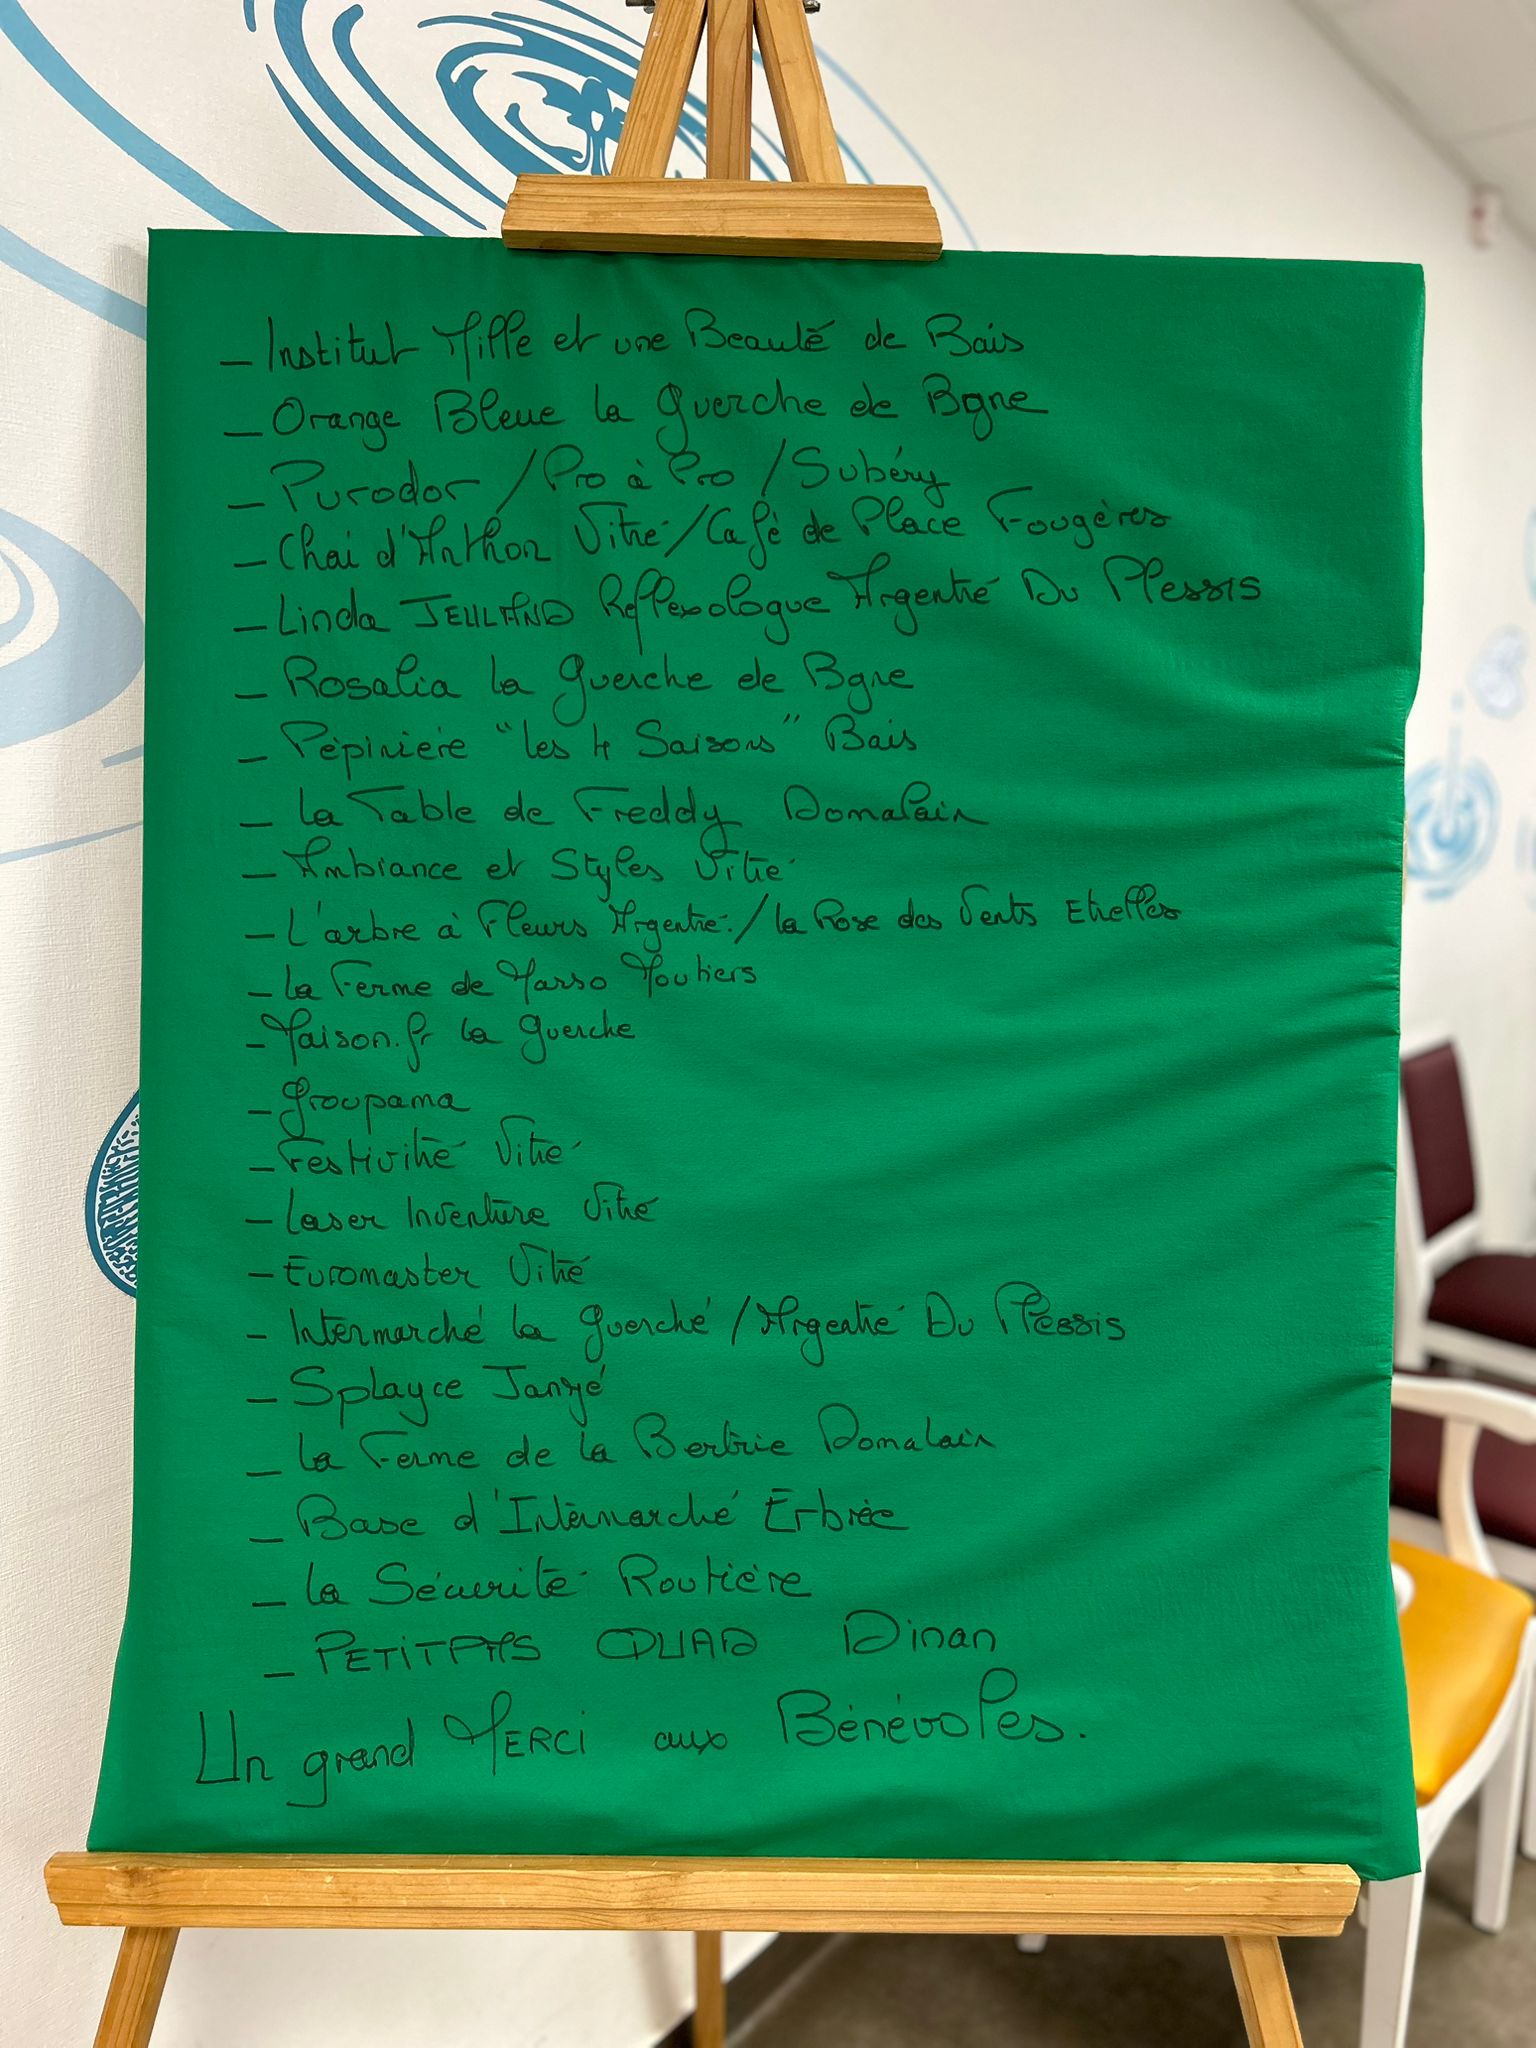 - Institut Mille et une Beauté de Bais
- Orange Bleue la Guerche de Bgne
- Purodor / Pro à Pro / Subéry
- Chai d'Anthon Vitré / Café de Place Fougères
- Linda JEULAND Reflexologue Argentré Du Plessis
- Rosalia la Guerche de Bgne
- Pépinière "les 4 Saisons" Bais
- La Table de Freddy Domalain
- Ambiance et Styles Vitré
- L'arbre à Fleurs Argentré / la Rose des Vents Etrelles
- La Ferme de Marso Moutiers
- Maison.fr la Guerche
- Groupama
- Festivité Vitré
- Laser Inventure Vitré
- Euromaster Vitré
- Intermarché la Guerché / Argentré Du Plessis
- Splayce Janzé
- La Ferme de la Bertrie Domalain
- Base d'Intermarché Erbrée
- la Sécurité Routière
- PETITPAS QUAD Dinan
Un grand MERCI aux Bénévoles.